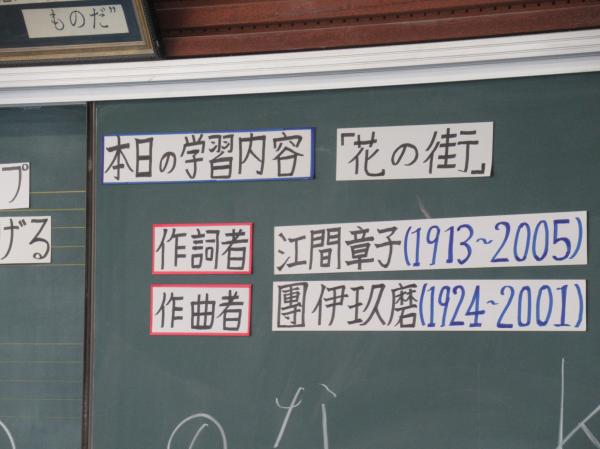 ものだ”
本日の学習内容 「花の街」
プ
げる
作詞者 江間章子(1913~2005)
作曲者 團伊玖磨(1924~2001)
のな